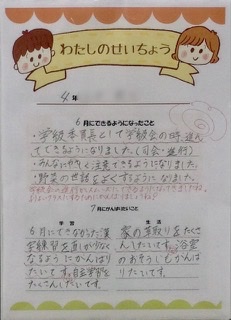 わたしのせいちょう
4年
6月にできるようになったこと
・学級委員長として学級会の時、進ん
でできるようになりました。(司会・進行)
・みんなにやさしく注意できるようになりました。
・野菜の世話をよくするようになりました。
学級会の進行がスムーズにできるようになってきましたね。
7月にがんばりたいこと
学習
生活
6月にできなかった漢
字練習を直しがなく
なるようにがんばり
たいです。自主学習を
たくさんしたいです。
家の草取りをたくさ
んしたいです。浴室
のおそうじもがんば
りたいです。